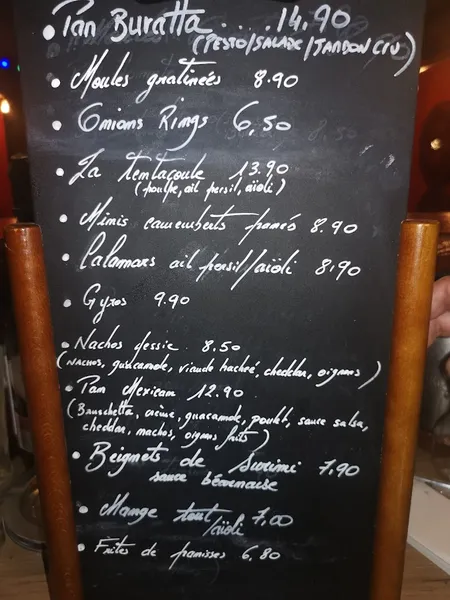 • Pan Buratta .... 14.90
(PESTO/SALADE/JAMBON CRU)
• Moules gratineés 8.90
• Onions Rings 6,50
• La tentacoule 13.90
(poulpe, ail persil, aïoli)
• Minis camemberts panés 8.90
• Calamars ail persil/aïoli 8,90
• Gyros 9.90
• Nachos 8.50
(NACHOS, guacamole, viande hachée, cheddar, oignons)
• Pan Mexican 12.90
(Bruschetta, guacamole, poulet, sauce salsa,
cheddar, nachos, oignons frits)
• Beignets de Surimi 7,90
sauce béarnaise
• Mange tout 7,00
/aïoli
• Frites de panisses 6,80